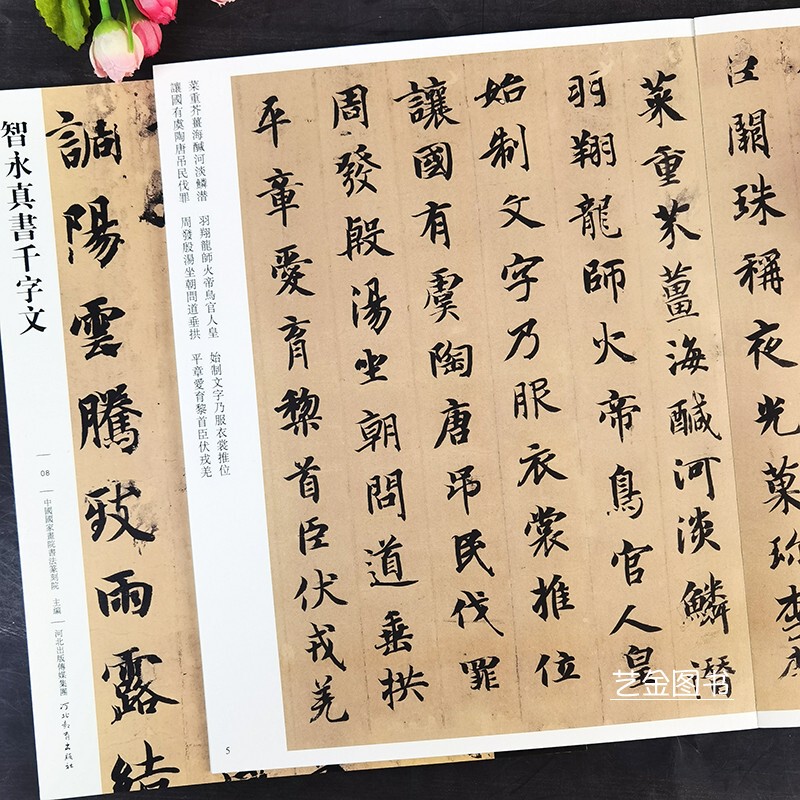 闕珠稱夜光菓珍李柰
菜重芥薑海醎河淡鱗潛
羽翔龍師火帝鳥官人皇
始制文字乃服衣裳推位
讓國有虞陶唐吊民伐罪
周發殷湯坐朝問道垂拱
平章愛育黎首臣伏戎羌
菜重芥薑海醎河淡鱗潛 羽翔龍師火帝鳥官人皇 始制文字乃服衣裳推位
讓國有虞陶唐吊民伐罪 周發殷湯坐朝問道垂拱 平章愛育黎首臣伏戎羌
5
調陽雲騰致雨露結
智永真書千字文
08
中國國家畫院書法篆刻院 主編
河北出版傳媒集團 河北教育出版社
艺金图书